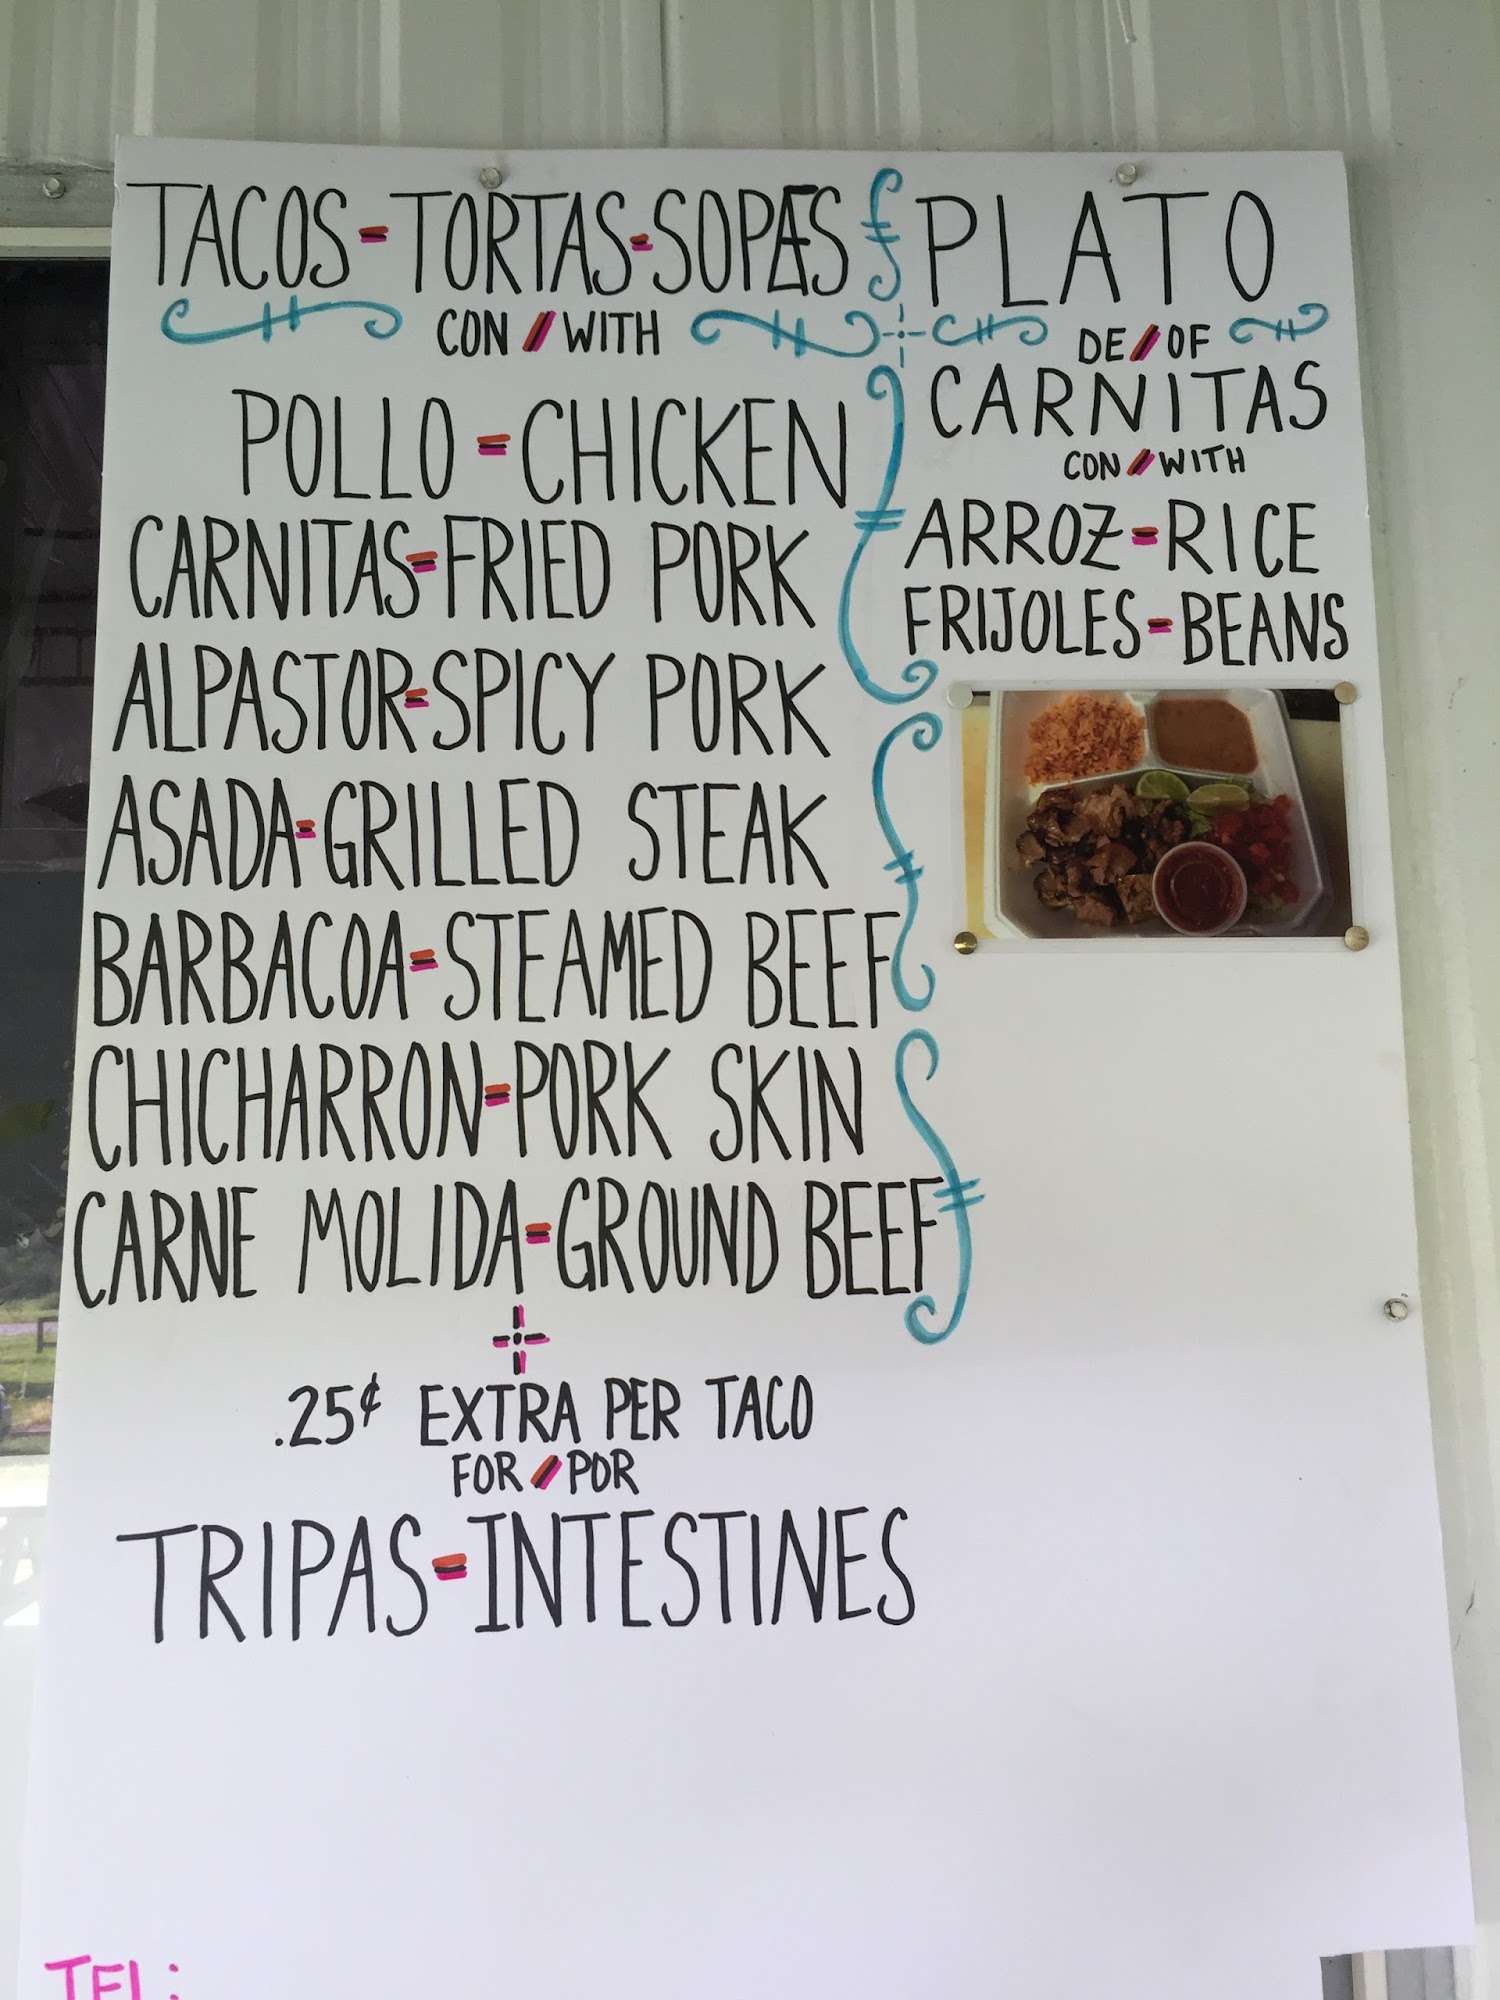 TACOS=TORTAS=SOPES
CON/WITH
POLLO=CHICKEN
CARNITAS=FRIED PORK
ALPASTOR=SPICY PORK
ASADA=GRILLED STEAK
BARBACOA=STEAMED BEEF
CHICHARRON=PORK SKIN
CARNE MOLIDA=GROUND BEEF
.25¢ EXTRA PER TACO
FOR/POR
TRIPAS=INTESTINES
PLATO
DE/OF
CARNITAS
CON/WITH
ARROZ=RICE
FRIJOLES=BEANS
TEL: